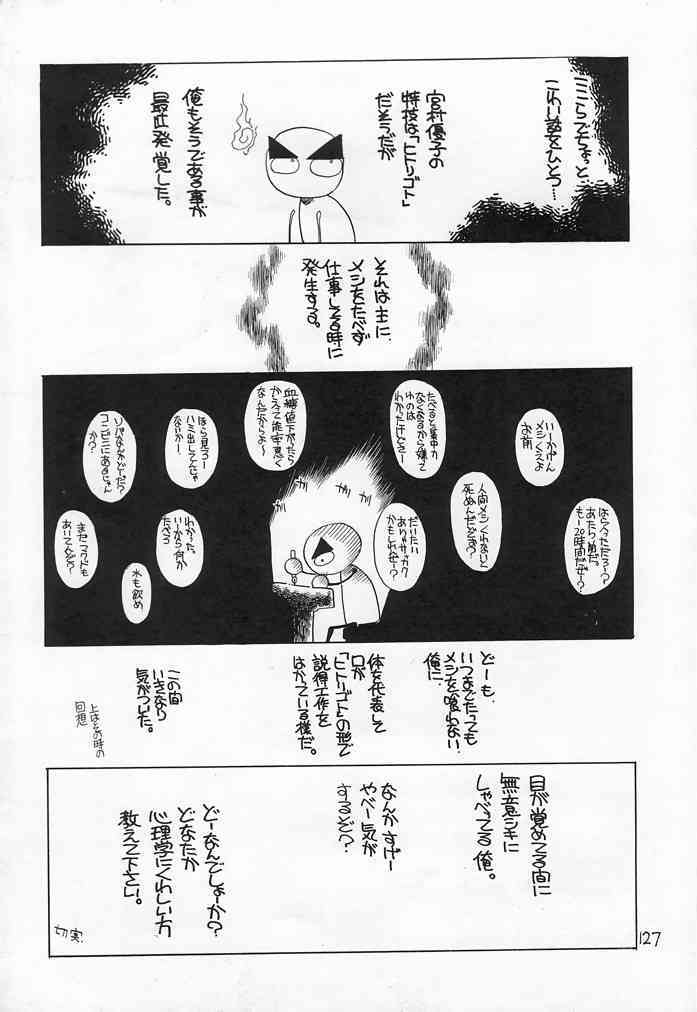 ここらでちょっと
こわい話をひとつ…
宮村優子の
特技は、「ヒトリゴト」
だそうだが
俺もそうである事が
最近発覚した。
それは主に、
メシをたべず
仕事してる時に
発生する。
いーかげん
メシくえよ
お前
たべると集中力
なくなるから嫌て
のは
わかったけどさー
血糖値下がったら
かえって能率悪く
なんだからよ〜
ほら見ろー
ハミ出してんじゃ
ないかー、
ソバなんかどーだ?
コンビニにあるじゃん
か?
はらへっただろー?
あたり前だ。
もー20時間だぜー?
人間メシくわないと
死ぬんだとぞ?
だいたい
ありゃサッカク
かもしれねーぜ?
ガ
ガ
ガ
わかった。
いーから何か
たべろ
水も飲め
まだマクドも
あいてんぞ〜
どーも、
いつまでたっても
メシを喰わない
俺に、
体を代表して
口が
「ヒトリゴト」の形で
説得工作を
はかっている様だ。
この間
いきなり
気がついた。
上はその時の
回想
目が覚めてる間に
無意シキに
しゃべってる俺。
なんかすげー
やべー気が
するぞ?
どーなんでしょーか?
どなたか
心理学にくわしい方
教えて下さい。
切実.
127